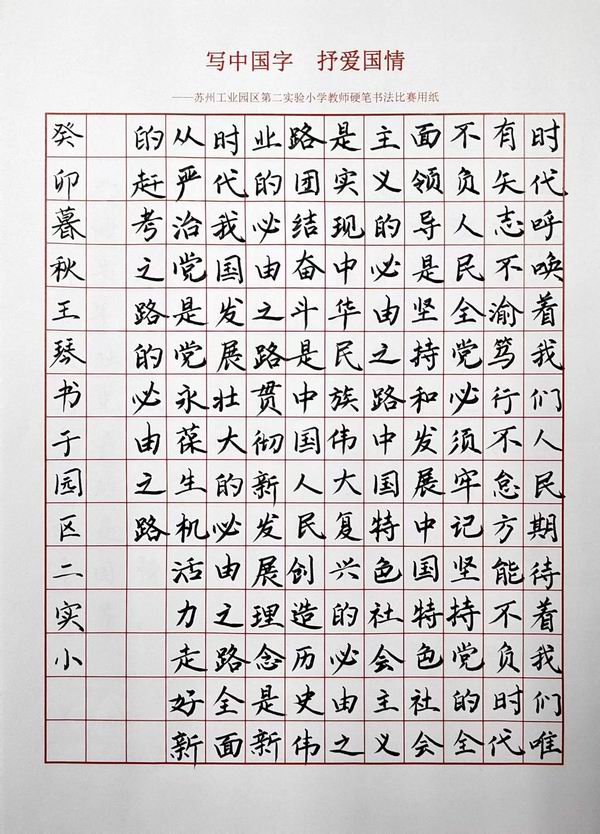 写中国字 抒爱国情
——苏州工业园区第二实验小学教师硬笔书法比赛用纸
时代呼唤着我们人民期待着我们唯
有矢志不渝笃行不怠方能不负时代
不负人民全党必须牢记坚持党的全
面领导是坚持和发展中国特色社会
主义的必由之路中国特色社会主义
是实现中华民族伟大复兴的必由之
路团结奋斗是中国人民创造历史伟
业的必由之路贯彻新发展理念是新
时代我国发展壮大的必由之路全面
从严治党是党永葆生机活力走好新
的赶考之路的必由之路
癸卯暮秋王琴书于园区二实小